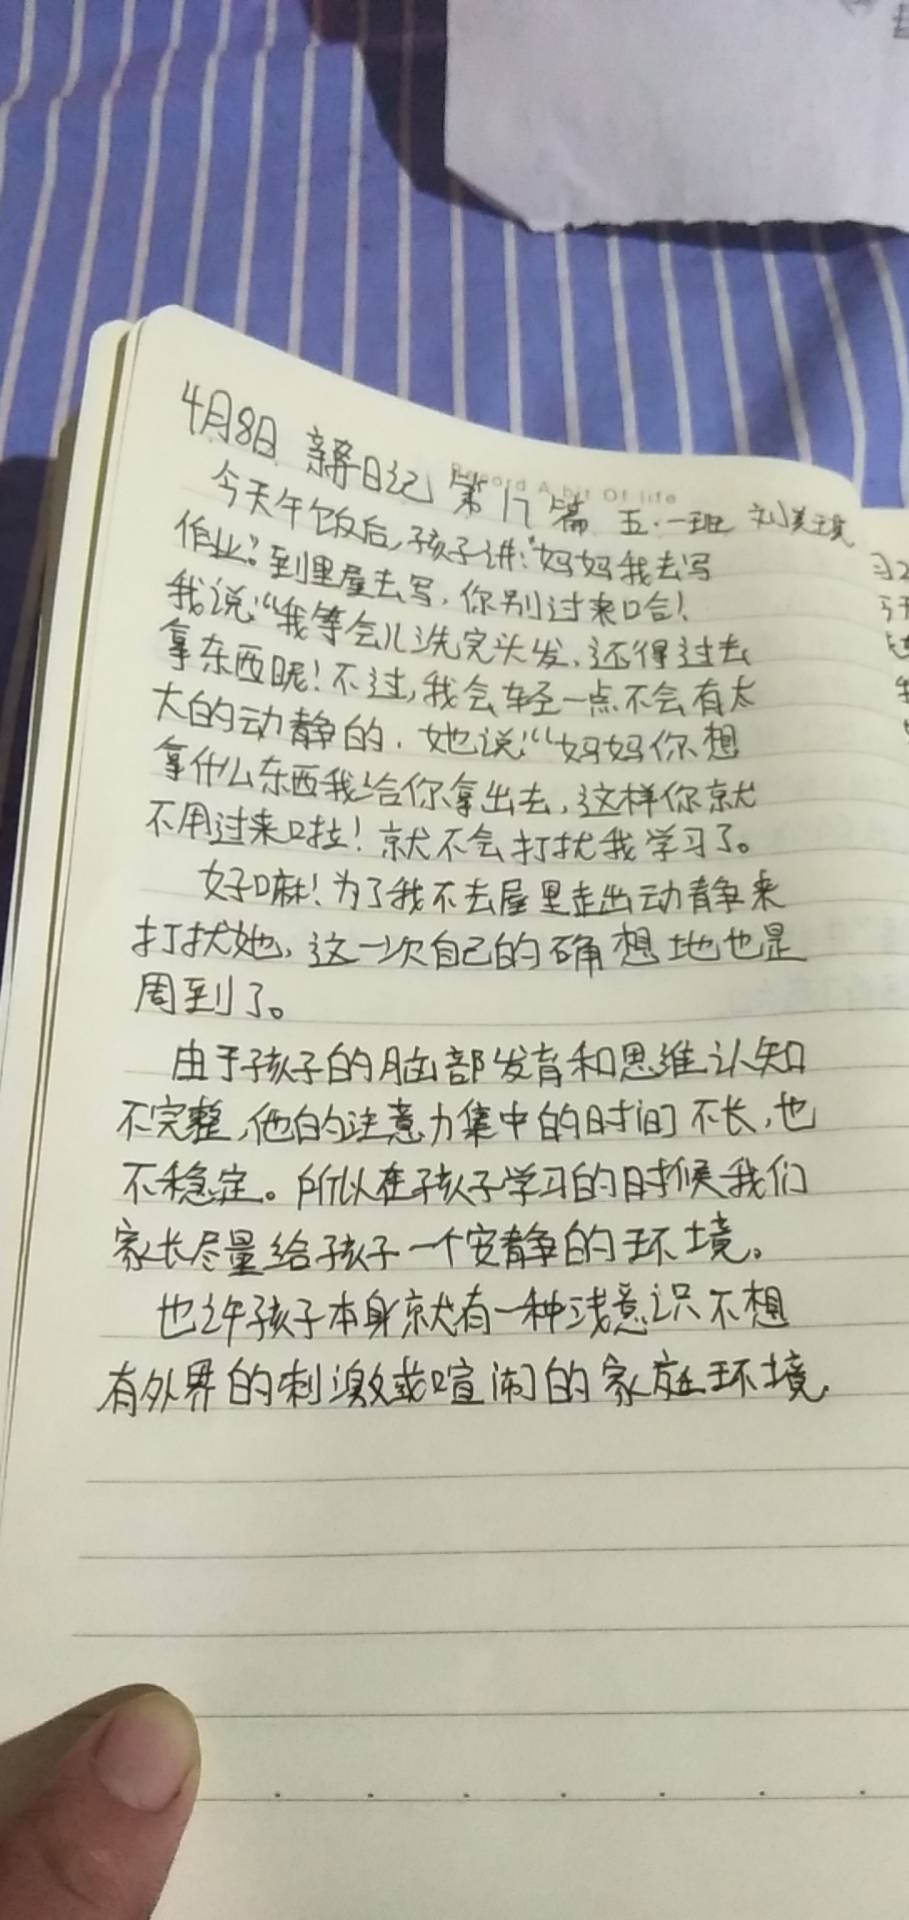 4月8日 亲子日记 第17篇 五·一班 刘美
Record A bit Of life
今天午饭后,孩子讲:"妈妈我去写
作业?到里屋去写,你别过来哈!
我说"我等会儿洗完头发,还得过去
拿东西呢!不过,我会轻一点不会有太
大的动静的.她说"妈妈你想
拿什么东西我给你拿出去,这样你就
不用过来啦!就不会打扰我学习了。
好嘛!为了我不去屋里走出动静来
打扰她,这一次自己的确想地也是
周到了。
由于孩子的脑部发育和思维认知
不完整,他的注意力集中的时间不长,也
不稳定。所以在孩子学习的时候我们
家长尽量给孩子一个安静的环境。
也许孩子本身就有一种浅意识不想
有外界的刺激或喧闹的家庭环境.